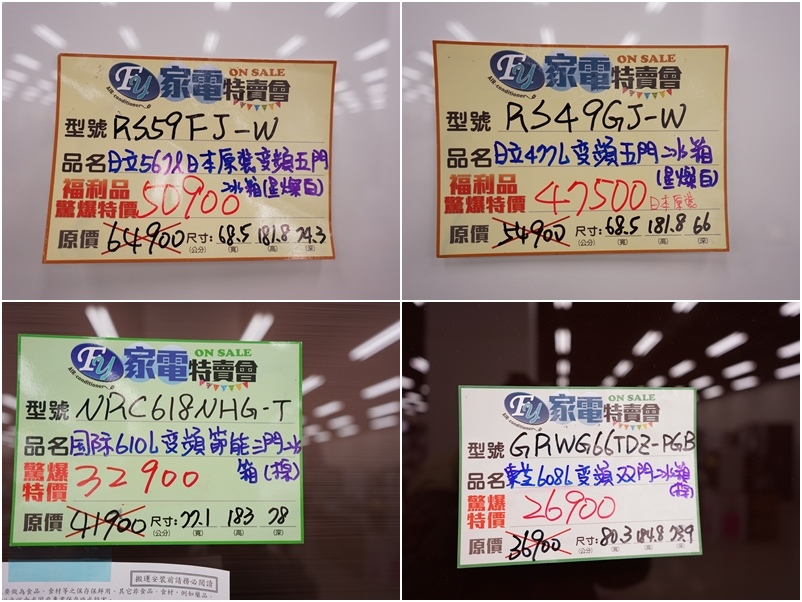 Fu 家電 特賣會
ON SALE
AIR conditioner
型號 RS59FJ-W
品名 日立567L日本原裝变頻五門
冰箱(星燦白)
福利品
驚爆特價 50900
原價 64900 尺寸: 68.5 181.8 74.3
(公分) (寬) (高) (深)
Fu 家電 特賣會
ON SALE
AIR conditioner
型號 RS49GJ-W
品名 日立477L变頻五門冰箱
(星燦白)
福利品
驚爆特價 47500 日本原裝
原價 54900 尺寸: 68.5 181.8 66
(公分) (寬) (高) (深)
Fu 家電 特賣會
ON SALE
AIR conditioner
型號 NRC618NHG-T
品名 国际610L变頻節能三門冰
箱(棕)
驚爆
特價 32900
原價 41900 尺寸: 77.1 183 78
(公分) (寬) (高) (深)
搬運安裝前請務必閱讀
Fu 家電 特賣會
ON SALE
AIR conditioner
型號 GRWG66TDZ-PGB
品名 東芝608L变頻双門冰箱
(棕)
驚爆
特價 26900
原價 36900 尺寸: 80.3 184.8 73.9
(公分) (寬) (高) (深)